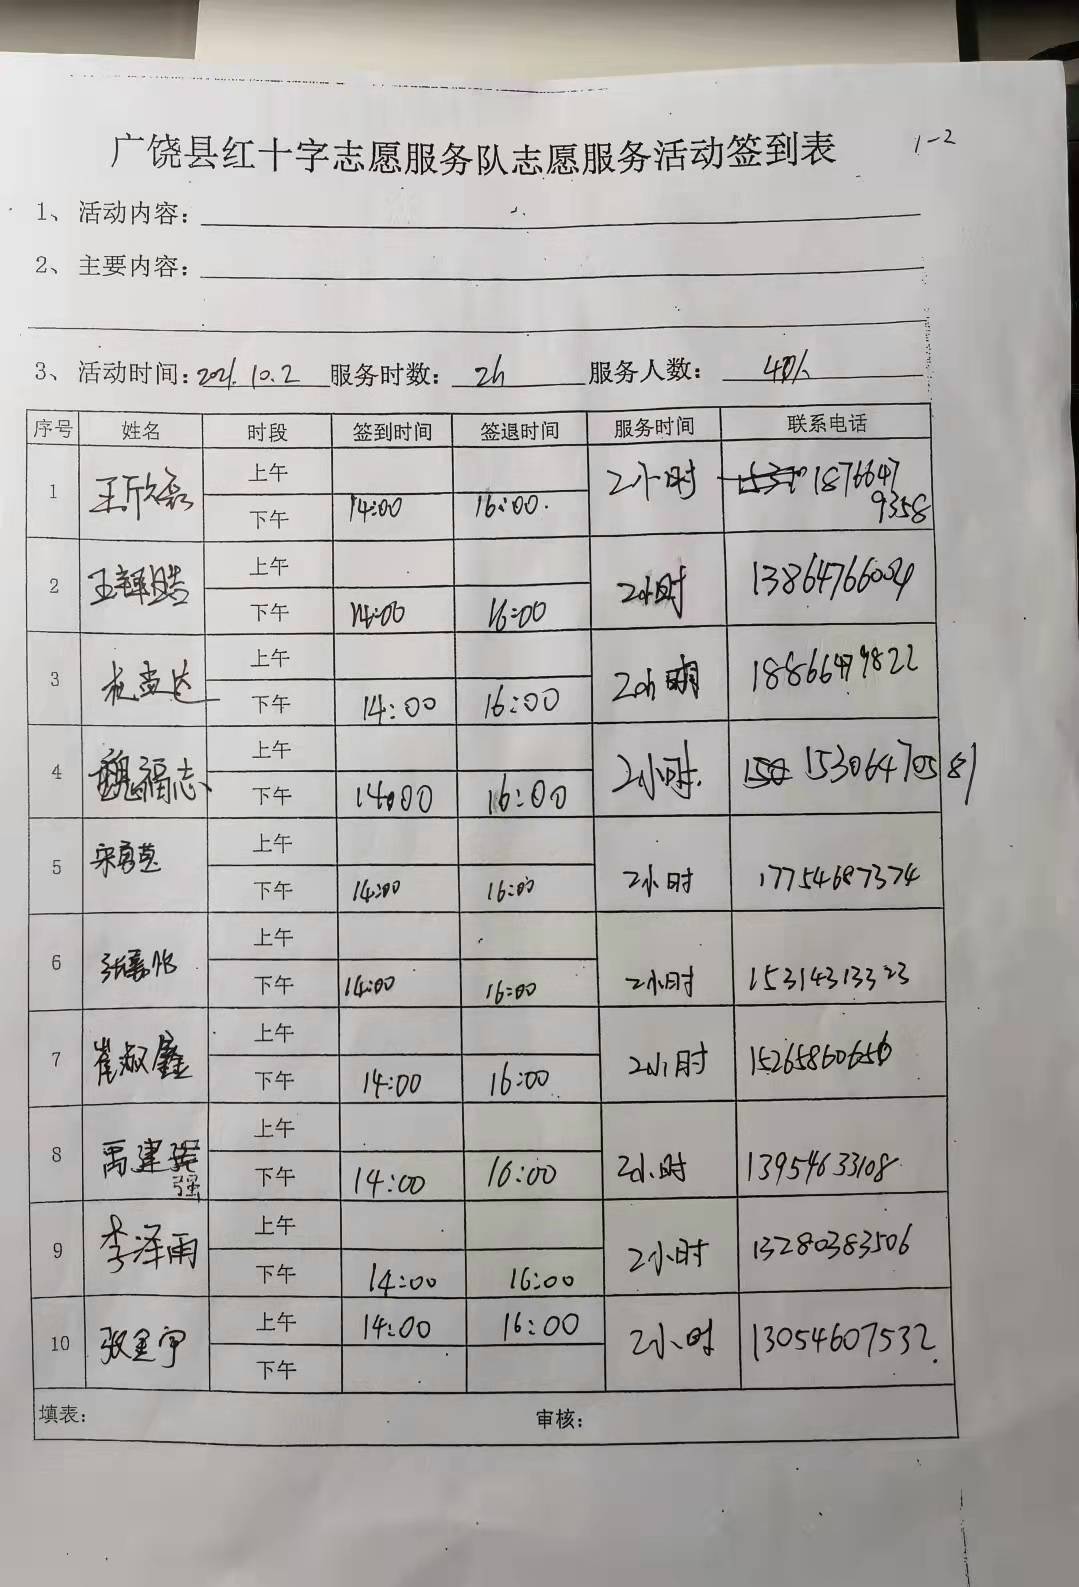 广饶县红十字志愿服务队志愿服务活动签到表
1-2
1、活动内容：
2、主要内容：
3、活动时间：2021.10.2 服务时数：2h 服务人数：
序号 姓名 时段 签到时间 签退时间 服务时间 联系电话
1 王欣磊 上午 2小时 18766479358
下午 14:00 16:00.
2 上午 2小时 13864766004
下午 14:00 16:00
3 上午 18866479822
下午 14:00 16:00
4 魏福志 上午 2小时. 15306470581
下午 14:00 16:00
5 上午 2小时 17754687374
下午 14:00 16:00
6 上午 2小时 15314313323
下午 14:00 16:00
7 崔淑鑫 上午 2小时 15265860656
下午 14:00 16:00
8 禹建强 上午 2小时 13954633108
下午 14:00 16:00
9 李泽雨 上午 2小时 13280383506
下午 14:00 16:00
10 张金宇 上午 14:00 16:00 2小时 13054607532.
下午
填表： 审核：